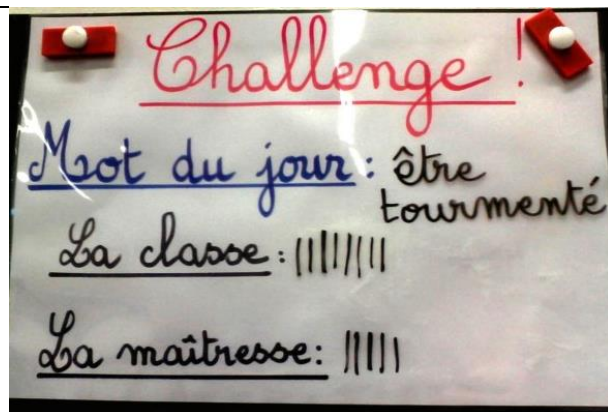 Challenge !
Mot du jour : être
tourmenté
La classe : |||||||||
La maîtresse : |||||